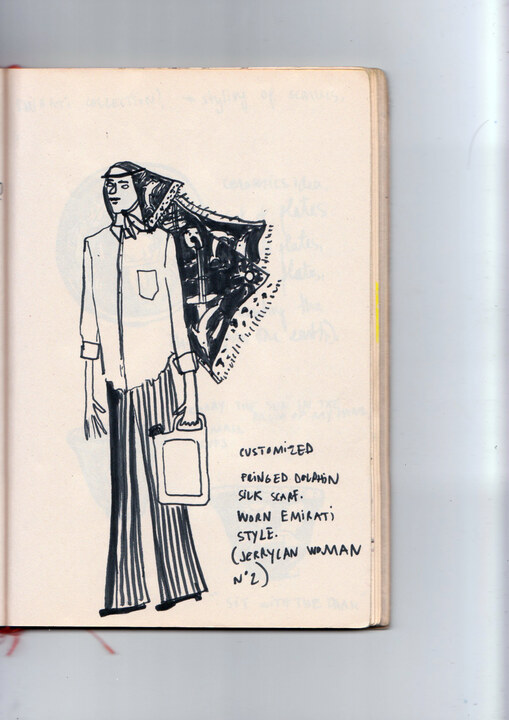 CUSTOMIZED
FRINGED DOLPHIN
SILK SCARF.
WORN EMIRATI
STYLE.
(JERRYCAN WOMAN
N°2)